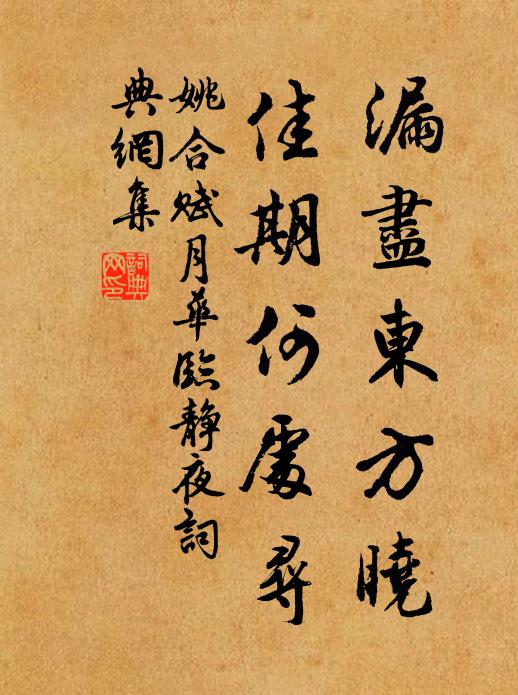 漏盡東方曉
佳期何處尋
姚合賦月華臨靜夜詞
典網集
詞典
网印